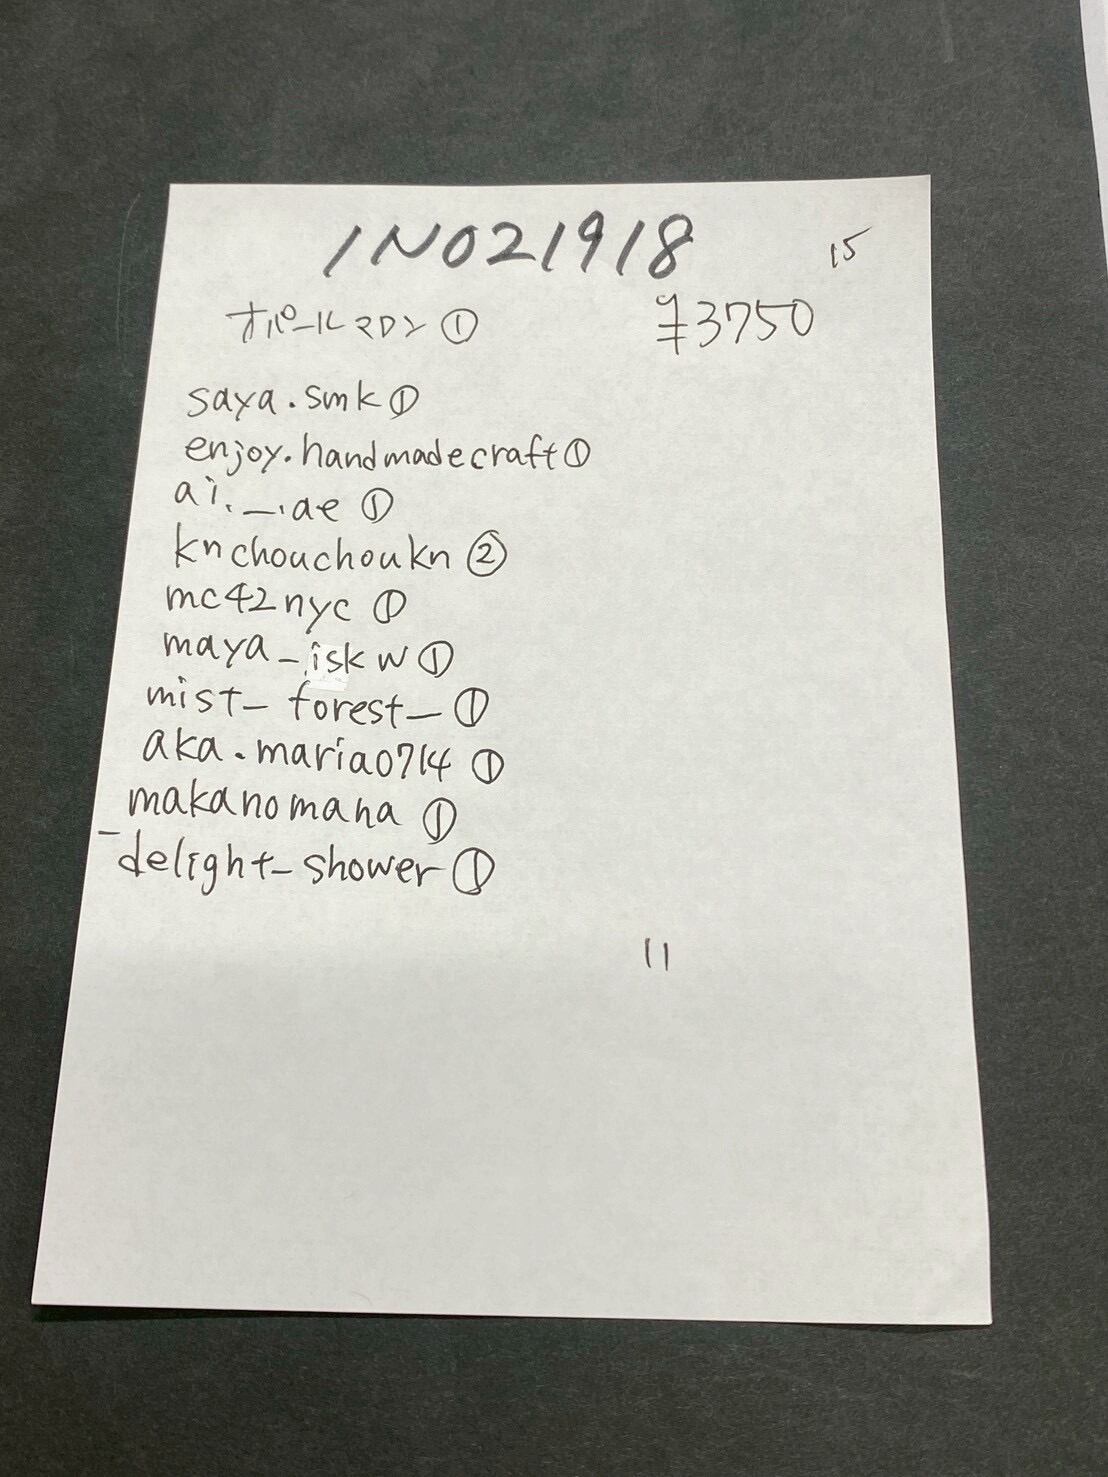 IN021918
15
オパールマロン ①
¥3750
saya.smk ①
enjoy.handmadecraft ①
ai._.ae ①
knchouchoukn ②
mc42nyc ①
maya_iskw ①
mist_forest_ ①
aka.maria0714 ①
makanomana ①
_delight_shower ①
11